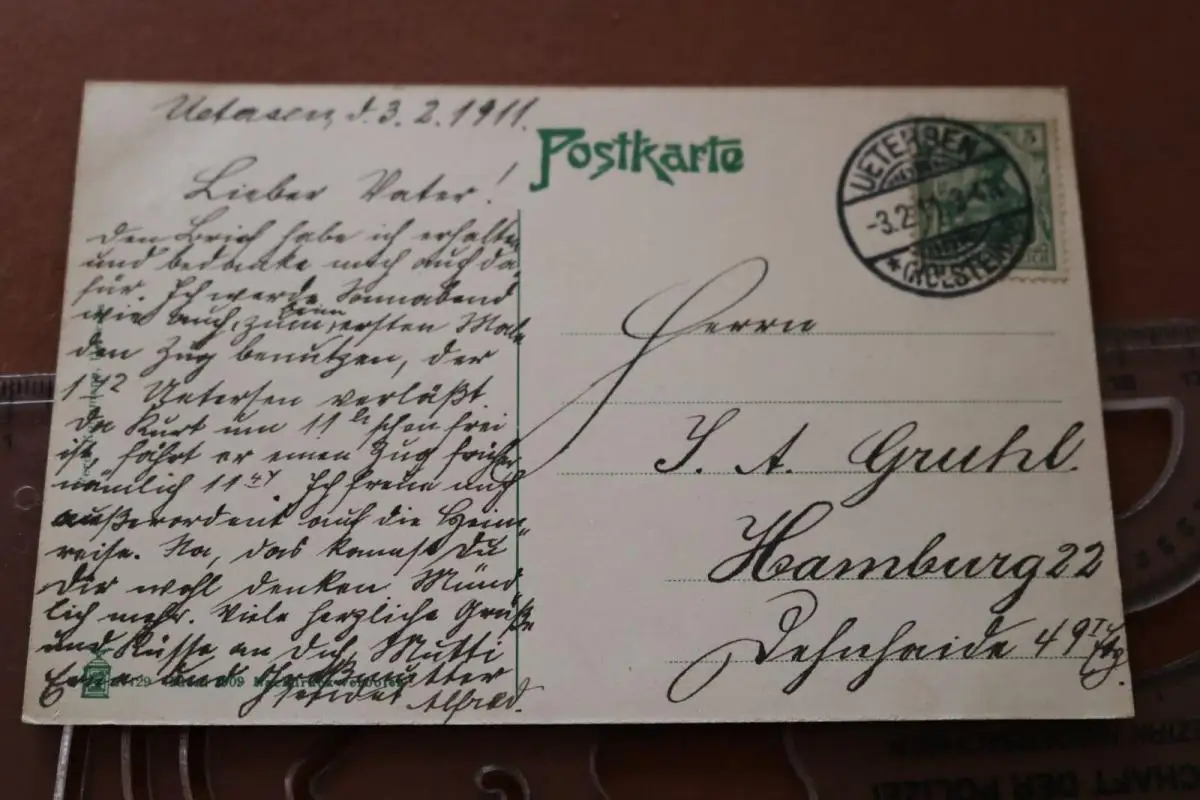 Uetersen, d. 3. 2. 1911.
Lieber Vater!
Den Brief habe ich erhalten
und bedanke mich auch da
für. Ich werde Sonnabend
wie auch, zum ersten Male
den Zug benutzen, der
1 12 Uetersen verläßt.
Da Kurt um 11 schon frei
ist, fährt er einen Zug früher
nämlich 11 47. Ich freue mich
außerordent auf die Heim-
reise. Na, das kannst Du
Dir wohl denken. Münd
lich mehr. Viele herzliche Grüße
und Küsse an Dich, Mutti
und Großmutter
sendet Alfred.
Postkarte
UETERSEN
-3.2.11. 3-4N
*(HOLSTEIN)
5
Herrn
J. A. Gruhl.
Hamburg 22
Dehnhaide 49 I Etg.
1909